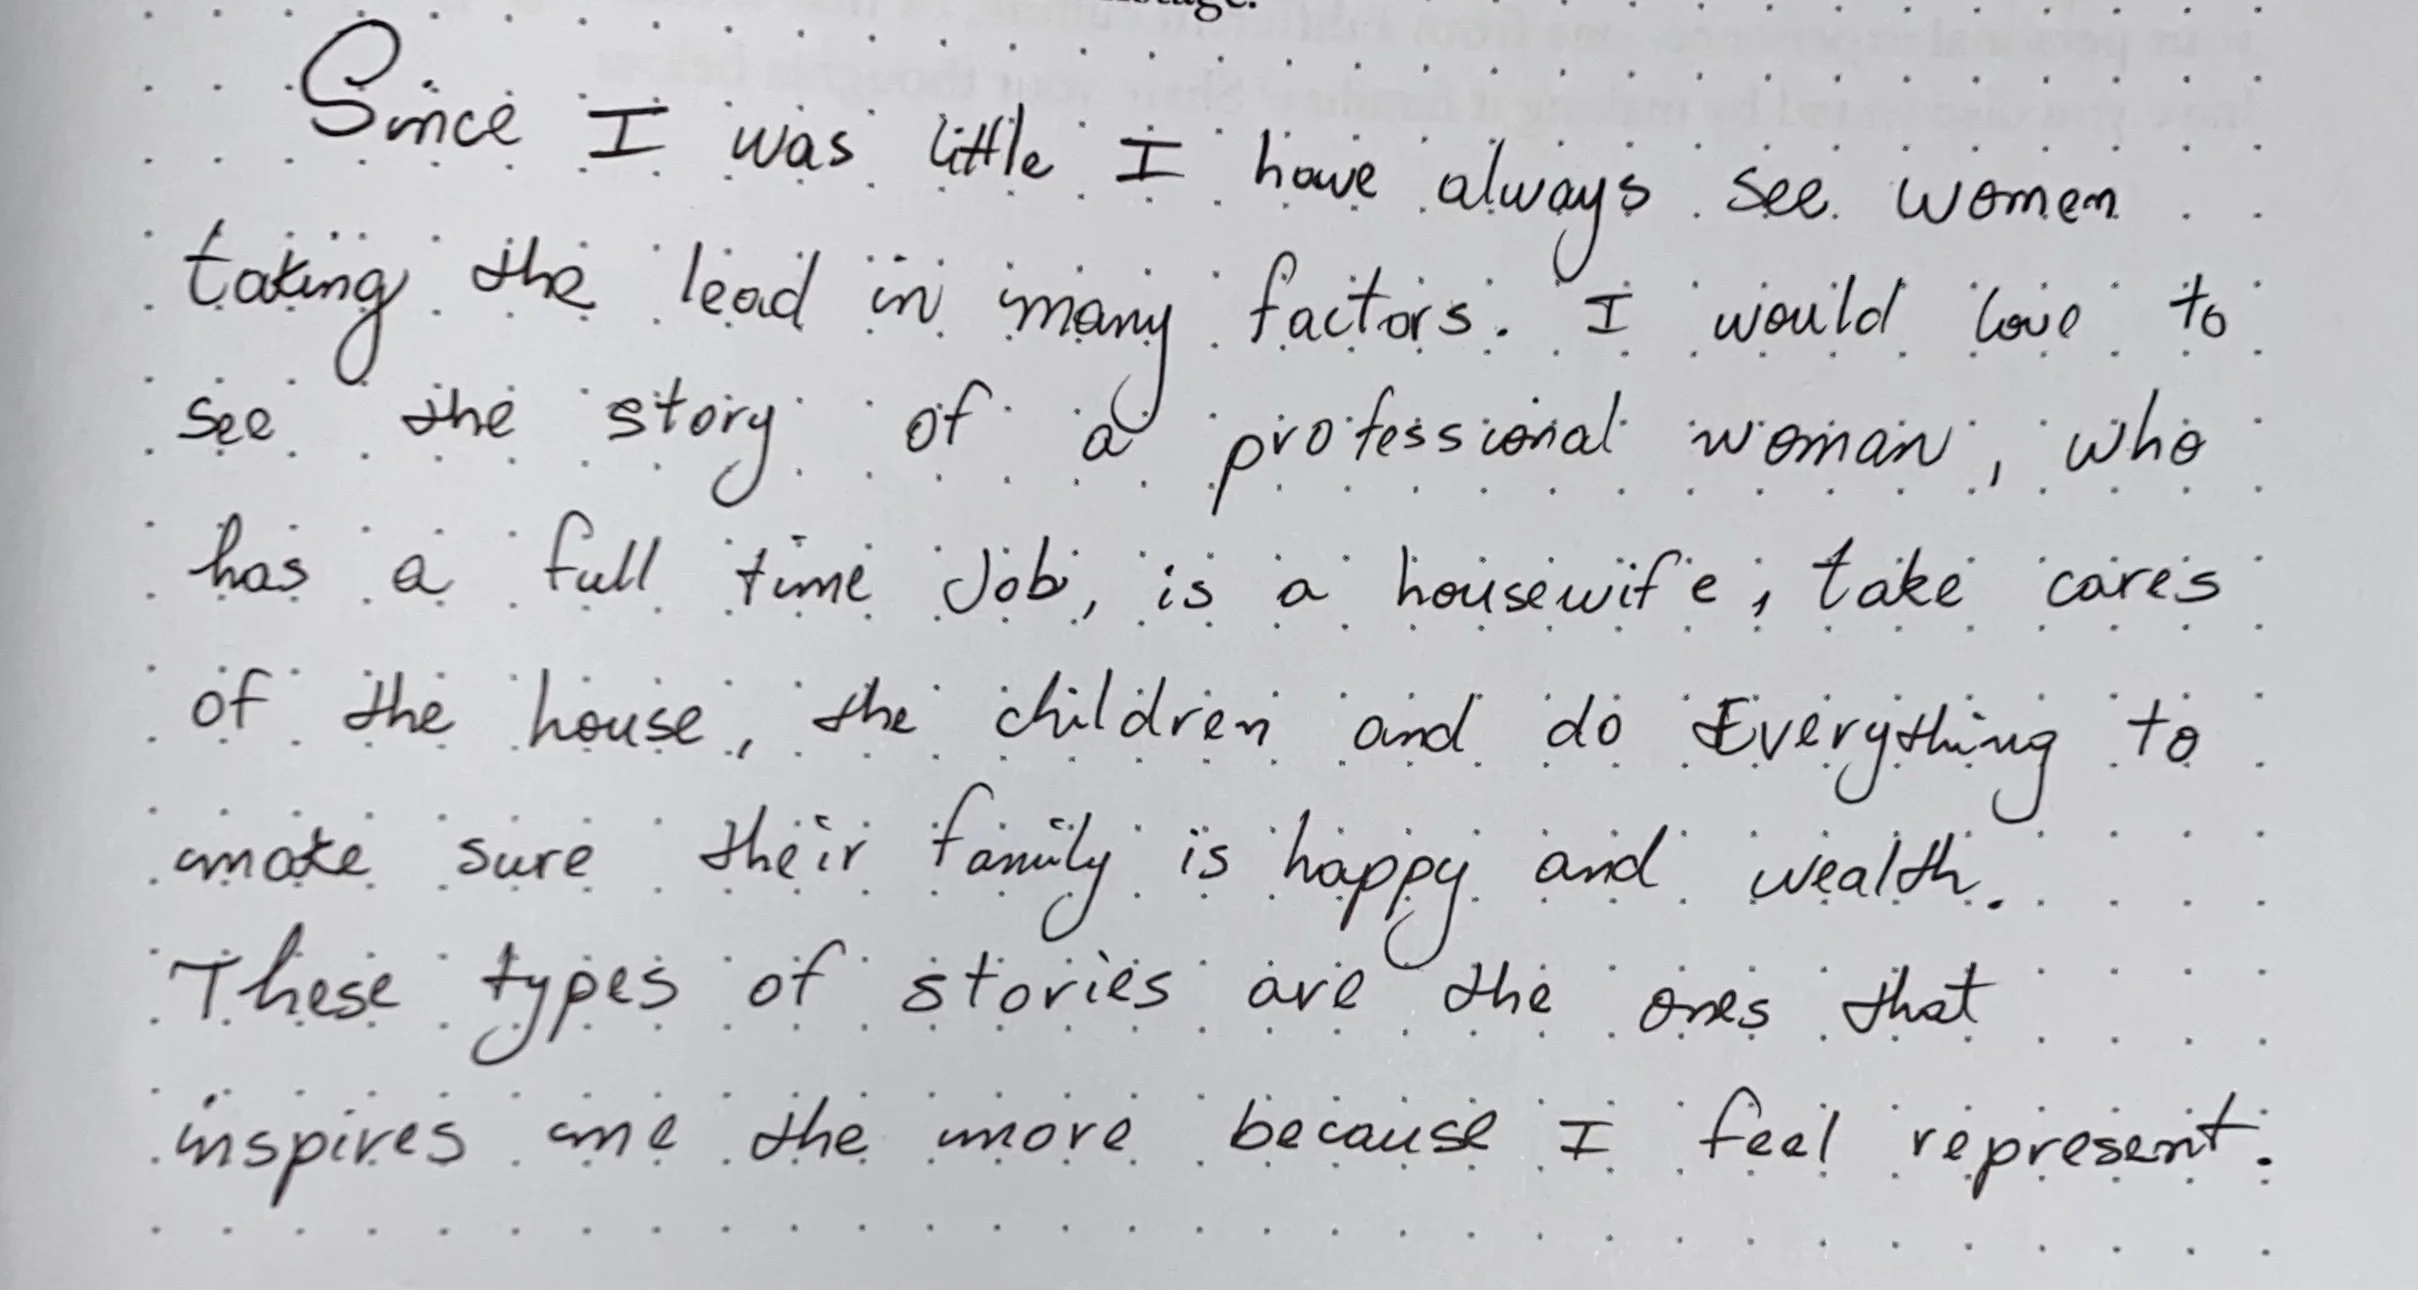 Since I was little I have always see women
taking the lead in many factors. I would love to
see the story of a professional woman, who
has a full time Job, is a housewife, take cares
of the house, the children and do Everything to
make sure their family is happy and wealth.
These types of stories are the ones that
inspires me the more because I feel represent.